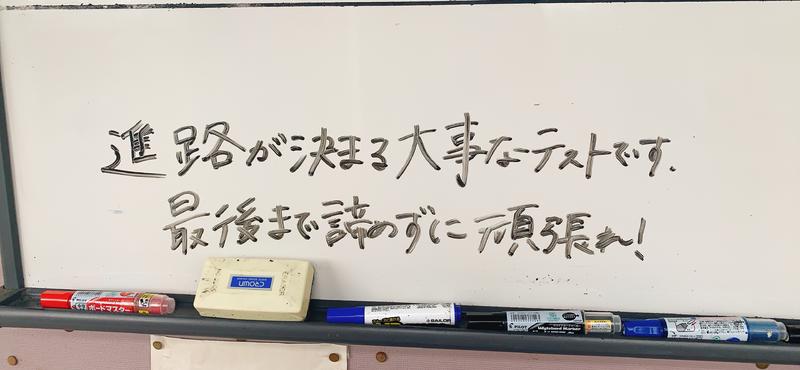 進路が決まる大事なテストです.
最後まで諦めずに頑張れ!
CROWN
ボードマスター
SAILOR
PILOT
Whiteboard Marker